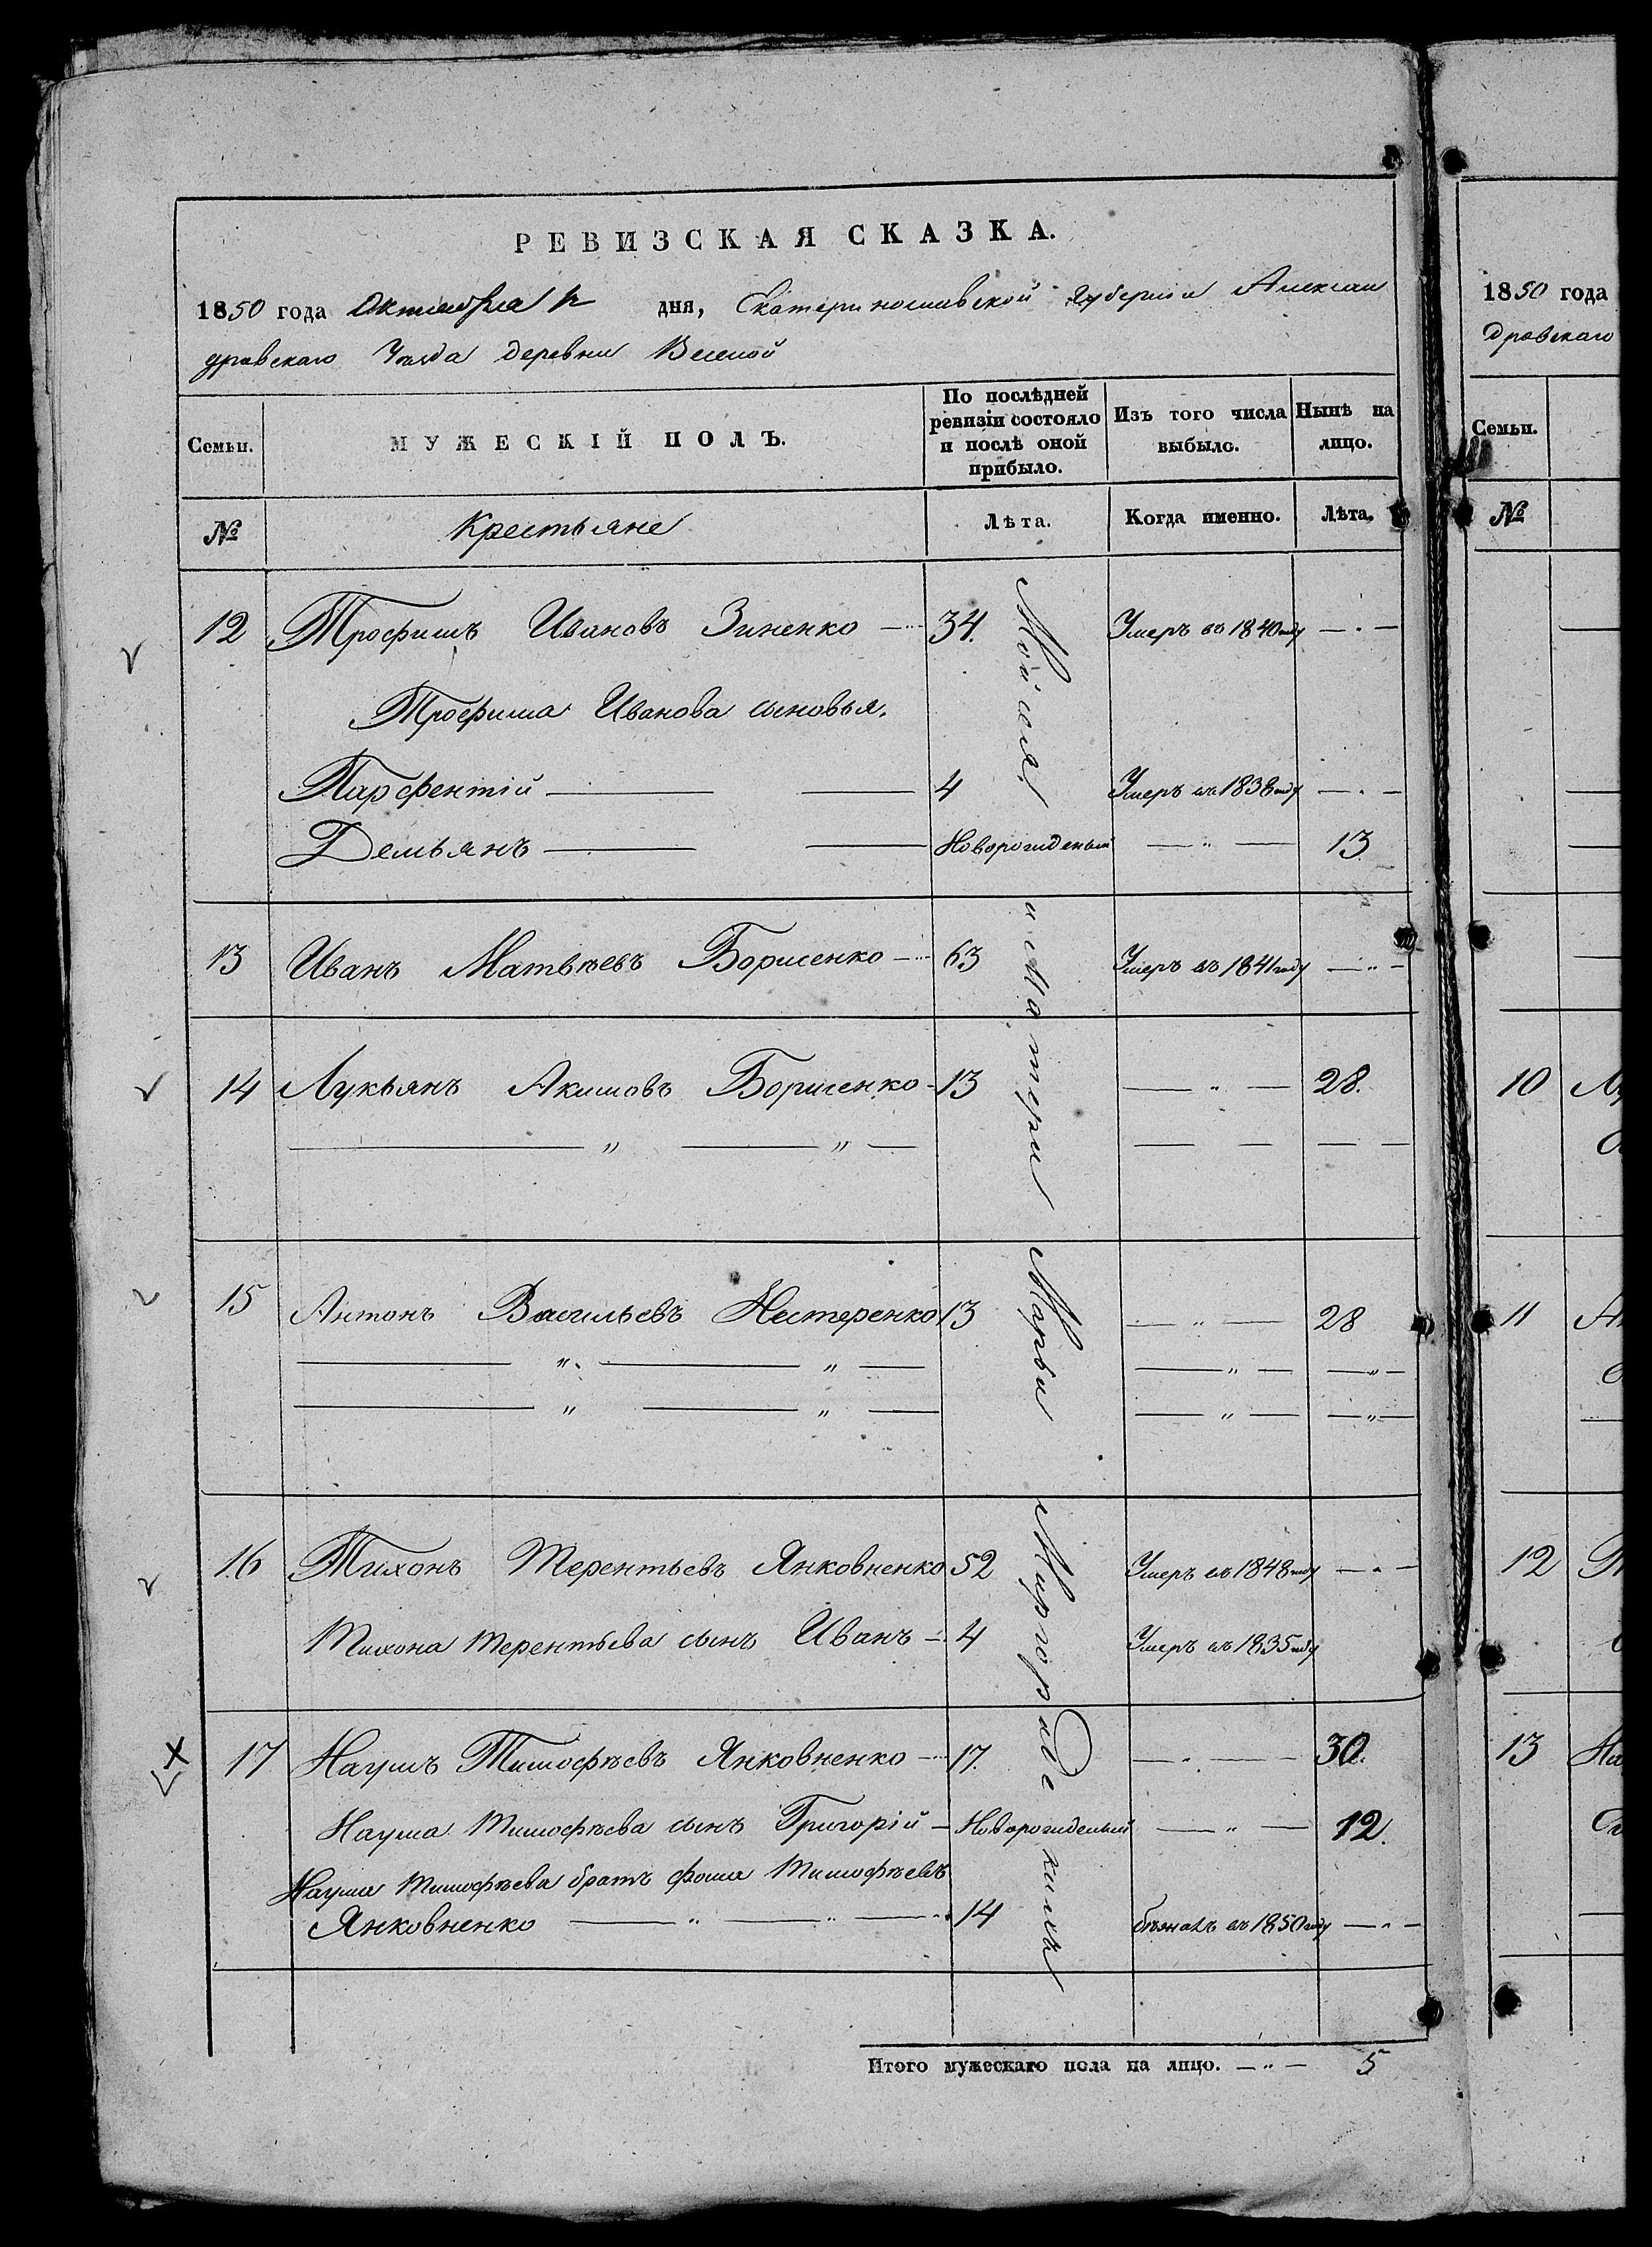 РЕВИЗСКАЯ СКАЗКА.
1850 года Октября дня, Екатеринославской Губернии Алексан
дровскаго Уезда деревни Веселой
Семьи. МУЖЕСКІЙ ПОЛЪ. По послѣдней ревизіи состояло и послѣ оной прибыло. Изъ того числа выбыло. Нынѣ на лицо.
№ Крестьяне Лѣта. Когда именно. Лѣта.
12 Трофимъ Ивановъ Зиненко 34. Умеръ въ 1840 году
Трофима Иванова сыновья.
Парфентій 4 Умеръ въ 1838 году
Демьянъ Новорожденый 13
13 Иванъ Матвѣевъ Борисенко 63 Умеръ въ 1841 году
14 Лукьянъ Акимовъ Борисенко 13 28.
15 Антонъ Васильевъ Нестеренко 13 28
16 Тихонъ Терентьевъ Янковненко 52 Умеръ въ 1848 году
Тихона Терентьева сынъ Иванъ 4 Умеръ въ 1835 году
17 Наумъ Тимофѣевъ Янковненко 17. 30.
Наума Тимофѣева сынъ Григорій Новорожденый 12.
Наума Тимофѣева братъ Фома Тимофѣевъ
Янковненко 14 бѣжалъ въ 1850 году
и матери Марьи
Итого мужескаго пола на лицо. 5
1850 года
дровскаго
Семьи.
№
10
11
12
13